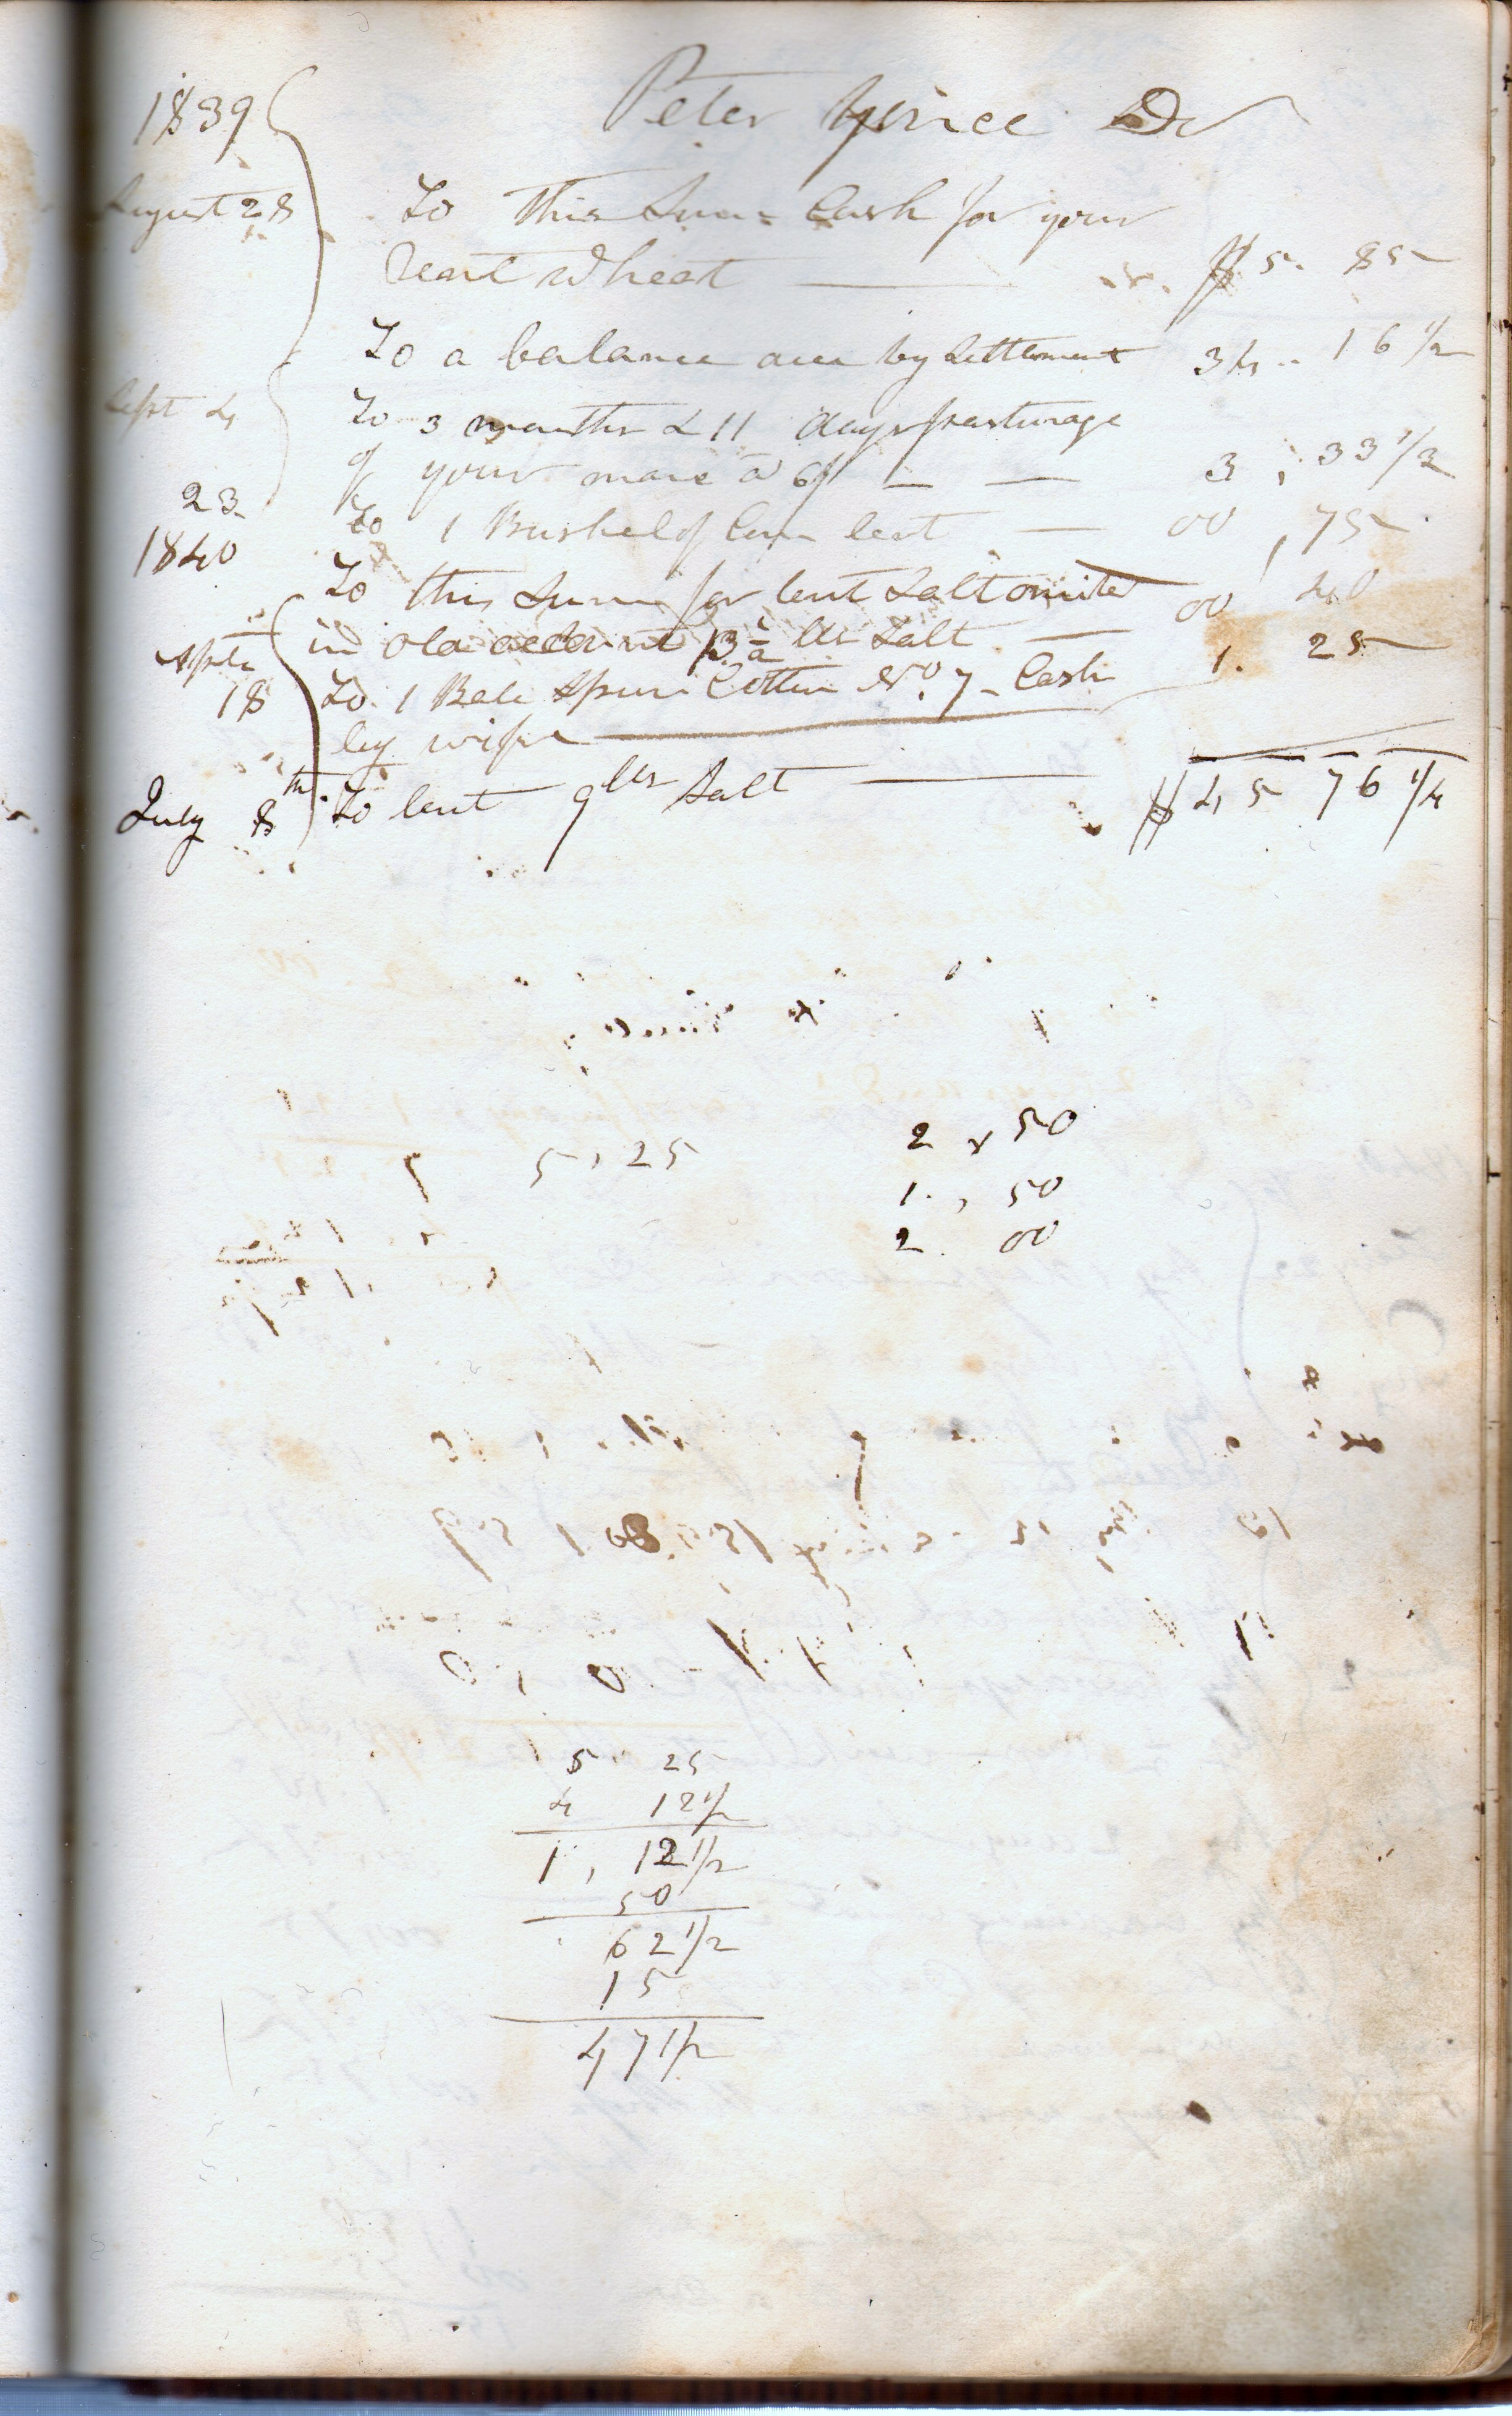 1839 Peter Dr
August 28 To this Sum Cash for your
Rent Wheat $5. 85
To a balance due by Settlement 34 .. 16 1/2
Sept 4 To 3 months & 11 days pasturage
of your mare a 6/ 3 , 33 1/3
23 To 1 Bushel of Corn lent 00 , 75
1840
To this Sum for lent Salt omited 00 40
in old account 13 1/2 lbs Salt
Aprle 18 To 1 Bale Spun Cotton No. 7 - Cash 1. 25
by wife
July 8th To lent 9 lbs Salt $45 76 1/4
5,25
2 , 50
1. , 50
2. 00
5, 25
4 12 1/2
1, 12 1/2
50
62 1/2
15
47 1/2